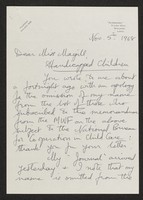 Nov. 5th 1968
Dear Miss Magill
Handicapped Children
You wrote to me about
a fortnight ago with an apology
for the omission of my name
from the list of those who
subscribed to the memorandum
from the MWF on the above
subject to the National Bureau
for Co-operation in Child Care. I
thank you for your letter.
My Journal arrived
yesterday & I note that my
name is omitted from this